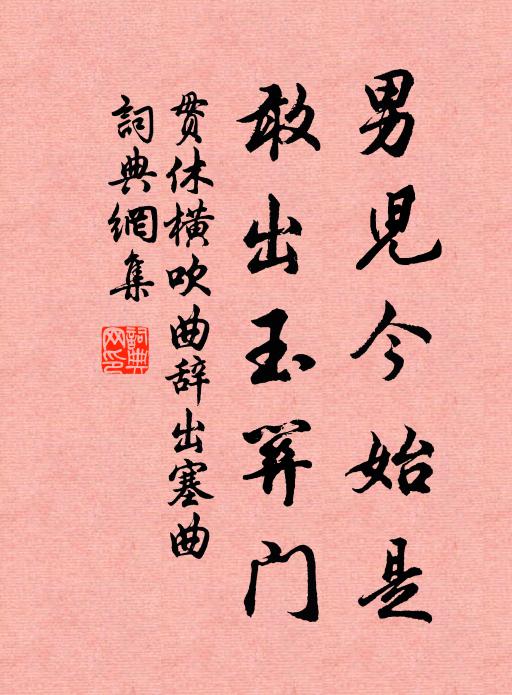 男児今始是
敢出玉関门
贯休横吹曲辞出塞曲
詞典網集
詞典网印